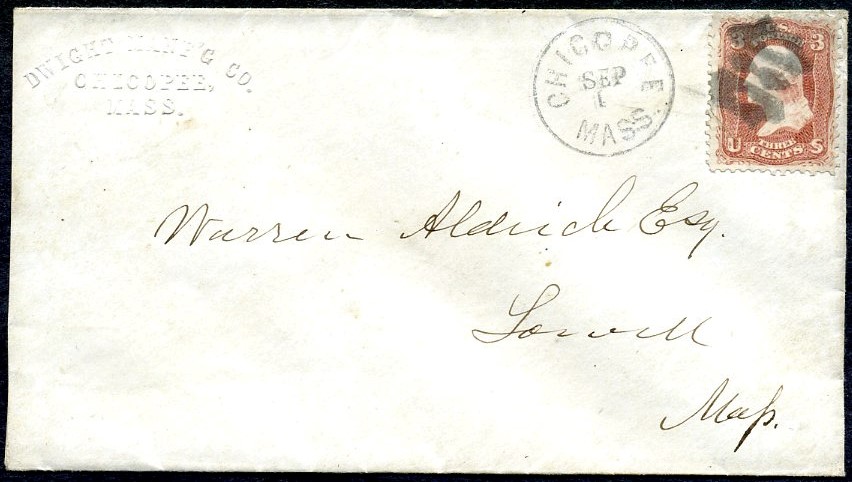 DWIGHT MANF'G CO.
CHICOPEE,
MASS.
CHICOPEE
SEP
1
MASS.
3 3
U THREE S
CENTS
Warren Aldrich Esq.
Lowell
Maſs.